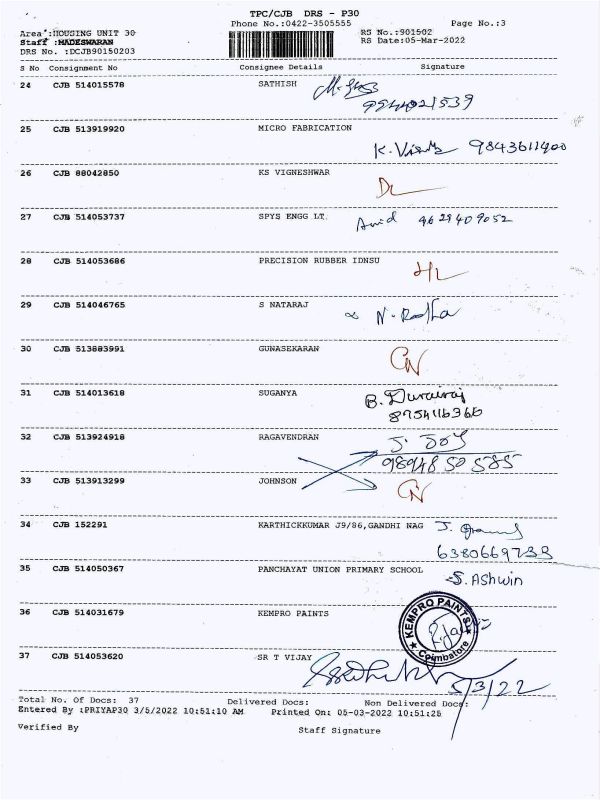 TPC/CJB DRS - P30
Phone No.:0422-3505555
Page No.:3
Area :HOUSING UNIT 30
Staff :MADESWARAN
DRS No. :DCJB90150203
RS No.:901502
RS Date:05-Mar-2022
S No Consignment No Consignee Details Signature
24 CJB 514015578 SATHISH
9944021539
25 CJB 513919920 MICRO FABRICATION
K. 9843611400
26 CJB 88042850 KS VIGNESHWAR
27 CJB 514053737 SPYS ENGG LT.
9629409052
28 CJB 514053686 PRECISION RUBBER IDNSU
29 CJB 514046765 S NATARAJ
N. Radha
30 CJB 513883991 GUNASEKARAN
31 CJB 514013618 SUGANYA
B. Durairaj
8754116366
32 CJB 513924918 RAGAVENDRAN
J. JOY
98948 50 585
33 CJB 513913299 JOHNSON
34 CJB 152291 KARTHICKKUMAR J9/86,GANDHI NAG
J.
6380669733
35 CJB 514050367 PANCHAYAT UNION PRIMARY SCHOOL
S. Ashwin
36 CJB 514031679 KEMPRO PAINTS
KEMPRO PAINTS
Coimbatore
37 CJB 514053620 SR T VIJAY
5/3/22
Total No. Of Docs: 37 Delivered Docs: Non Delivered Docs:
Entered By :PRIYAP30 3/5/2022 10:51:10 AM Printed On: 05-03-2022 10:51:25
Verified By
Staff Signature